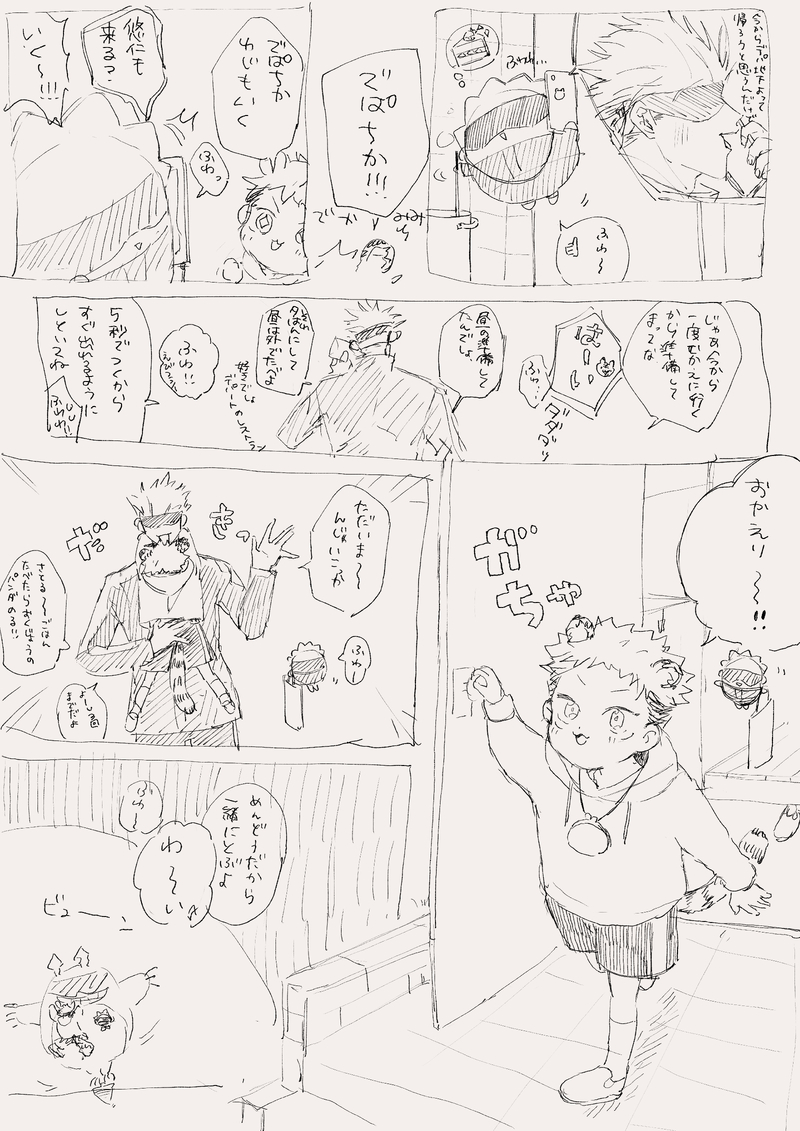 今からデパ地下よって
帰ろうと思うんだけど
ふわ…
ふわ〜
でぱちか!!!
みみ
でか
でぱちか
ゆじもいく
ふわっ
悠仁も
来る?
いく〜!!!
じゃあ今から
一度むかえに行く
から準備して
まってな
はーい
ふわ!
ダダダッ
昼の準備して
たんでしょ
夕ばんにして
昼は外でたべよ
好きでしょ
デパートのレストラン
ふわ!!
5秒でつくから
すぐ出れるように
しといてね
ふわわ!!
おかえり〜〜!!
ガちゃ
ただいま〜〜
んじゃいこっか
ふわー
ぎゅ
さとる〜〜ごはん
たべたらおくじょうの
パンダのる!!
よーし3回
までだよ
めんどうだから
一緒にとぶよ
ふわー
わ〜い♪
ビューーン